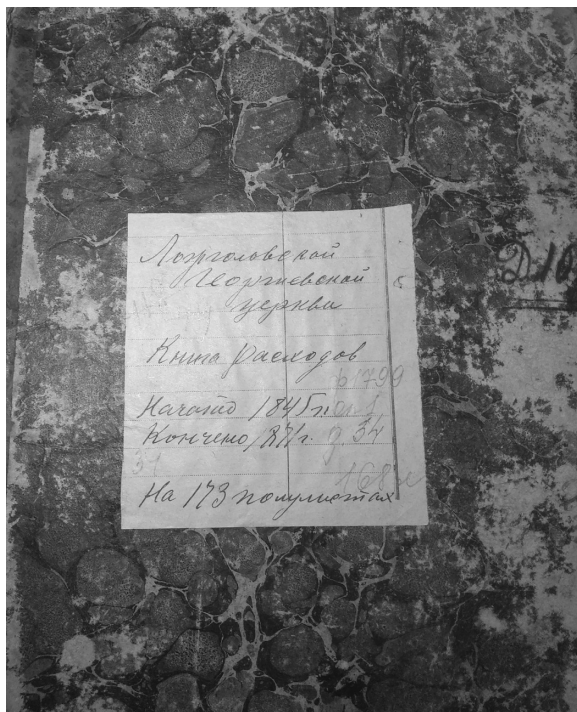 Ложголовской
Георгиевской
церкви
Д10
Книга расходов
ф1799
Начато 1845 г. оп.1,
Кончено 1871 г. д. 34
31
168 л
На 173 полулистах